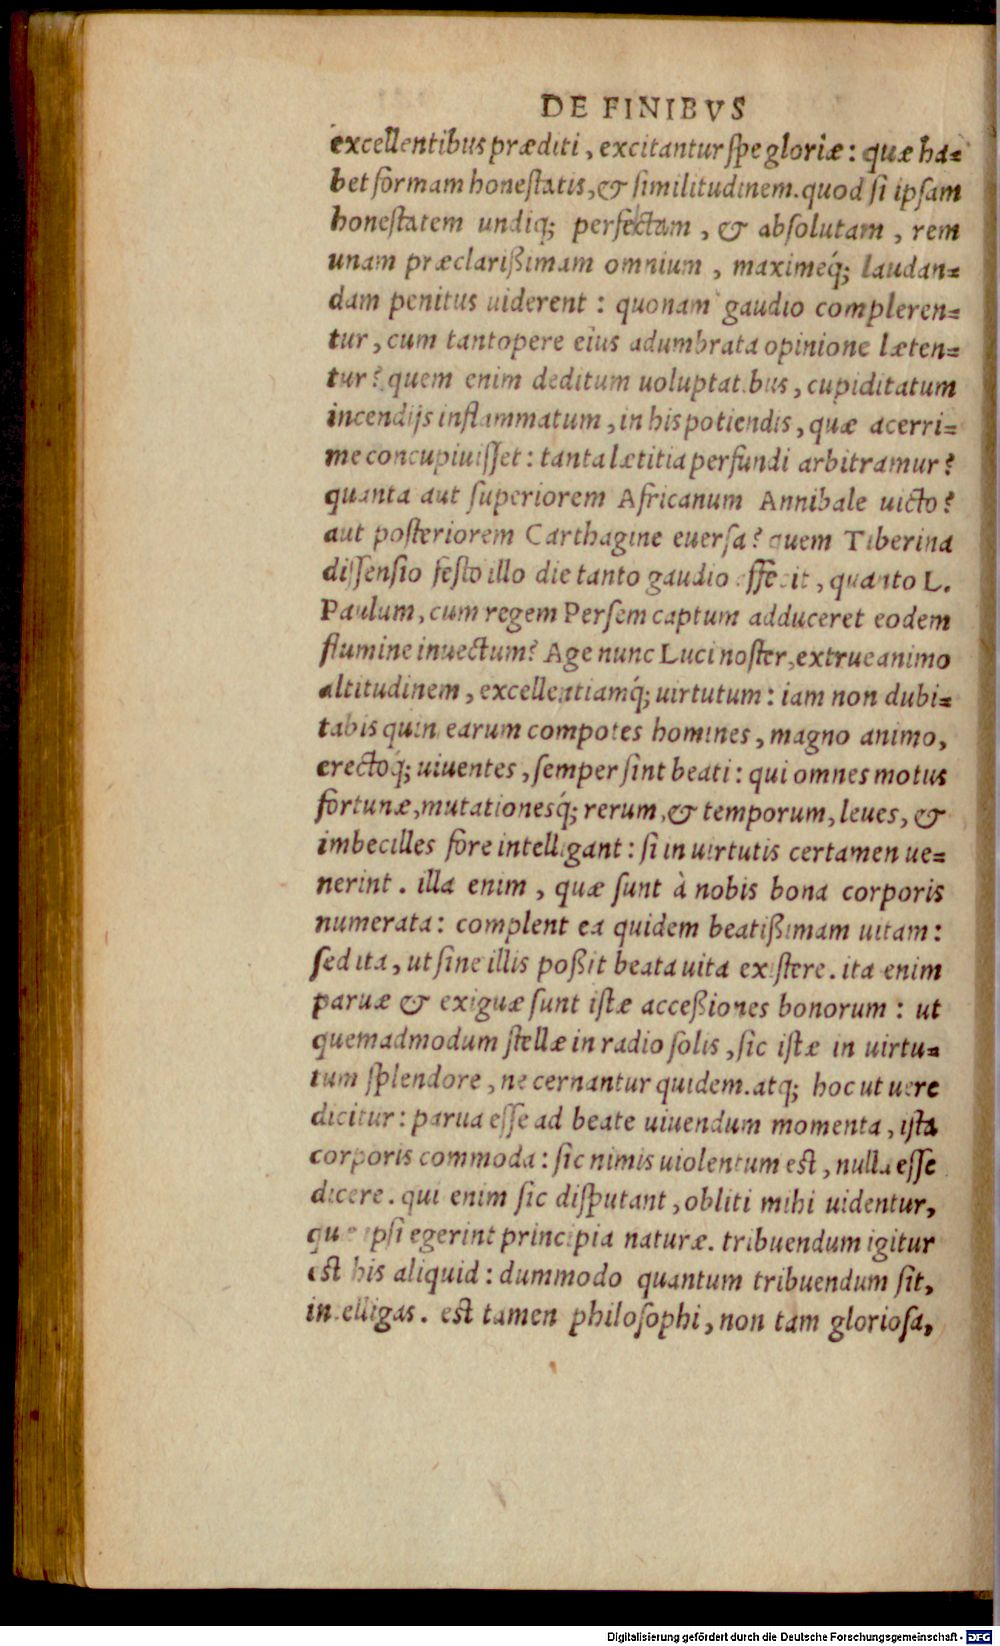 DE FINIBVS
excellentibus præditi, excitantur ſpe gloriæ: quæ ha=
bet formam honeſtatis, & ſimilitudinem. quod ſi ipſam
honeſtatem undiq; perfectam, & abſolutam, rem
unam præclarißimam omnium, maximeq́; laudan=
dam penitus uiderent: quonam gaudio compleren=
tur, cum tantopere eius adumbrata opinione læten=
tur? quem enim deditum uoluptatibus, cupiditatum
incendijs inflammatum, in his potiendis, quæ acerri=
me concupiuiſſet: tanta lætitia perfundi arbitramur?
quanta aut ſuperiorem Africanum Annibale uicto?
aut poſteriorem Carthagine euerſa? quem Tiberina
diſſenſio feſto illo die tanto gaudio effecit, quanto L.
Paulum, cum regem Perſem captum adduceret eodem
flumine inuectum? Age nunc Luci noſter, extrue animo
altitudinem, excellentiamq́; uirtutum: iam non dubi=
tabis quin earum compotes homines, magno animo,
erectoq́; uiuentes, ſemper ſint beati: qui omnes motus
fortunæ, mutationesq́; rerum, & temporum, leues, &
imbecilles fore intelligant: ſi in uirtutis certamen ue=
nerint. illa enim, quæ ſunt à nobis bona corporis
numerata: complent ea quidem beatißimam uitam:
ſed ita, ut ſine illis poßit beata uita exiſtere. ita enim
paruæ & exiguæ ſunt iſtæ acceßiones bonorum: ut
quemadmodum ſtellæ in radio ſolis, ſic iſtæ in uirtu=
tum ſplendore, ne cernantur quidem. atq; hoc ut uere
dicitur: parua eſſe ad beate uiuendum momenta, iſta
corporis commoda: ſic nimis uiolentum eſt, nulla eſſe
dicere. qui enim ſic diſputant, obliti mihi uidentur,
que ipſi egerint principia naturæ. tribuendum igitur
eſt his aliquid: dummodo quantum tribuendum ſit,
intelligas. eſt tamen philoſophi, non tam glorioſa,
Digitalisierung gefördert durch die Deutsche Forschungsgemeinschaft - DFG